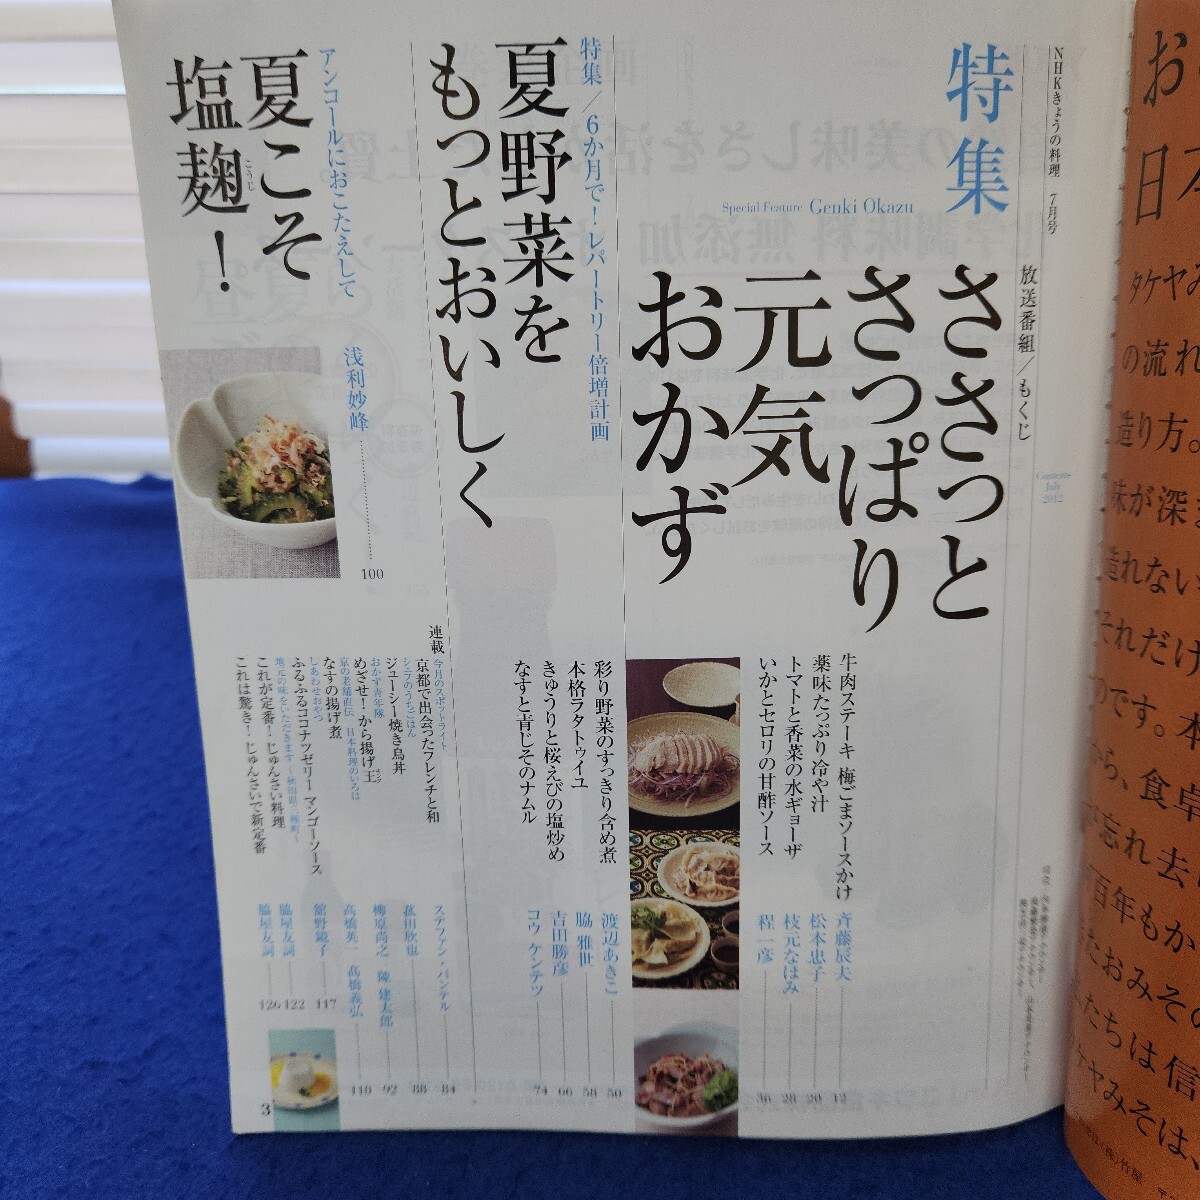 NHKきょうの料理 7月号
放送番組/もくじ
Contents
July
2012
特集
Special Feature Genki Okazu
ささっと
さっぱり
元気
おかず
牛肉ステーキ 梅ごまソースかけ
斉藤辰夫
12
薬味たっぷり冷や汁
松本忠子
20
トマトと香菜の水ギョーザ
枝元なほみ
28
いかとセロリの甘酢ソース
程一彦
36
特集/6か月で!レパートリー倍増計画
夏野菜を
もっとおいしく
彩り野菜のすっきり含め煮
渡辺あきこ
50
本格ラタトゥイユ
脇雅世
58
きゅうりと桜えびの塩炒め
吉田勝彦
66
なすと青じそのナムル
コウ ケンテツ
74
アンコールにおこたえして
夏こそ
塩麹!
こうじ
浅利妙峰
100
連載
今月のスポットライト
京都で出会ったフレンチと和
ステファン・パンテル
84
シェフのうちごはん
ジューシー焼き鳥丼
菰田欣也
88
おかず青年隊
めざせ!から揚げ王
キング
柳原尚之 陳建太郎
92
京の老舗直伝 日本料理のいろは
なすの揚げ煮
髙橋英一 髙橋義弘
110
しあわせおやつ
ふるふるココナツゼリー マンゴーソース
舘野鏡子
117
地元の味をいただきます 〜秋田県三種町〜
これが定番!じゅんさい料理
脇屋友詞
122
これは驚き!じゅんさいで新定番
脇屋友詞
126
3
タケヤみ
の流れ
造り方。
味が深
造れない
それだけ
のです。本
から、食卓
忘れ去
百年もか
たおみその
たちは信
ケヤみそは、
(株)竹屋